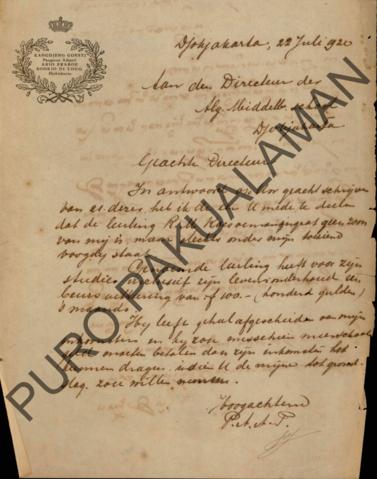 KANGDJENG GOESTI
Pangeran Adipati
ARIO PRABOE
SOERJO DI LOGO
Djokjakarta
Djokjakarta, 22 Juli 1920
Aan den Directeur der
Alg. Middelb. school
Djokjakarta
Geachte Directeur
In antwoord op Uw geacht schrijven
van dezer, heb ik de eer U mede te deelen
dat de leerling R.M. geen zoon
van mij is, maar slechts onder mijn toeziend
voogdij staat.
Genoemde leerling heeft voor zijn
studie en levensonderhoud een
beurs uitkeering van f 100.- (honderd gulden)
's maands.
Hij leeft geheel afgescheiden van mijn
inkomsten en hij zou misschien meer schoolgeld
moeten betalen dan zijn inkomsten het
kunnen dragen, indien U de mijne tot grond-
slag zou willen nemen.
Hoogachtend
P.A.A.P.
PURO PAKUALAMAN